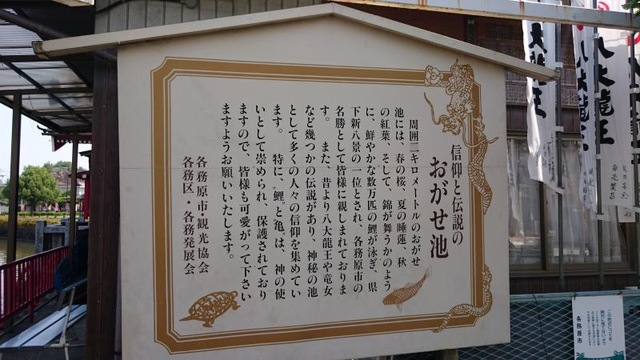 信仰と伝説の
おがせ池
周囲二キロメートルのおがせ
池には、春の桜、夏の睡蓮、秋
の紅葉、そして、錦が舞うかのよう
に、鮮やかな数万匹の鯉が泳ぎ、県
下新八景の一位とされ、各務原市の
名勝として皆様に親しまれておりま
す。また、昔より八大龍王や竜女
など幾つかの伝説があり、神秘の池
として多くの人々の信仰を集めてい
ます。特に、鯉と亀は、神の使
いとして崇められ、保護されており
ますので、皆様も可愛がって下さい
ますようお願いいたします。
各務原市・観光協会
各務区・各務発展会
大龍王
八大龍王
八大龍王
各務原市